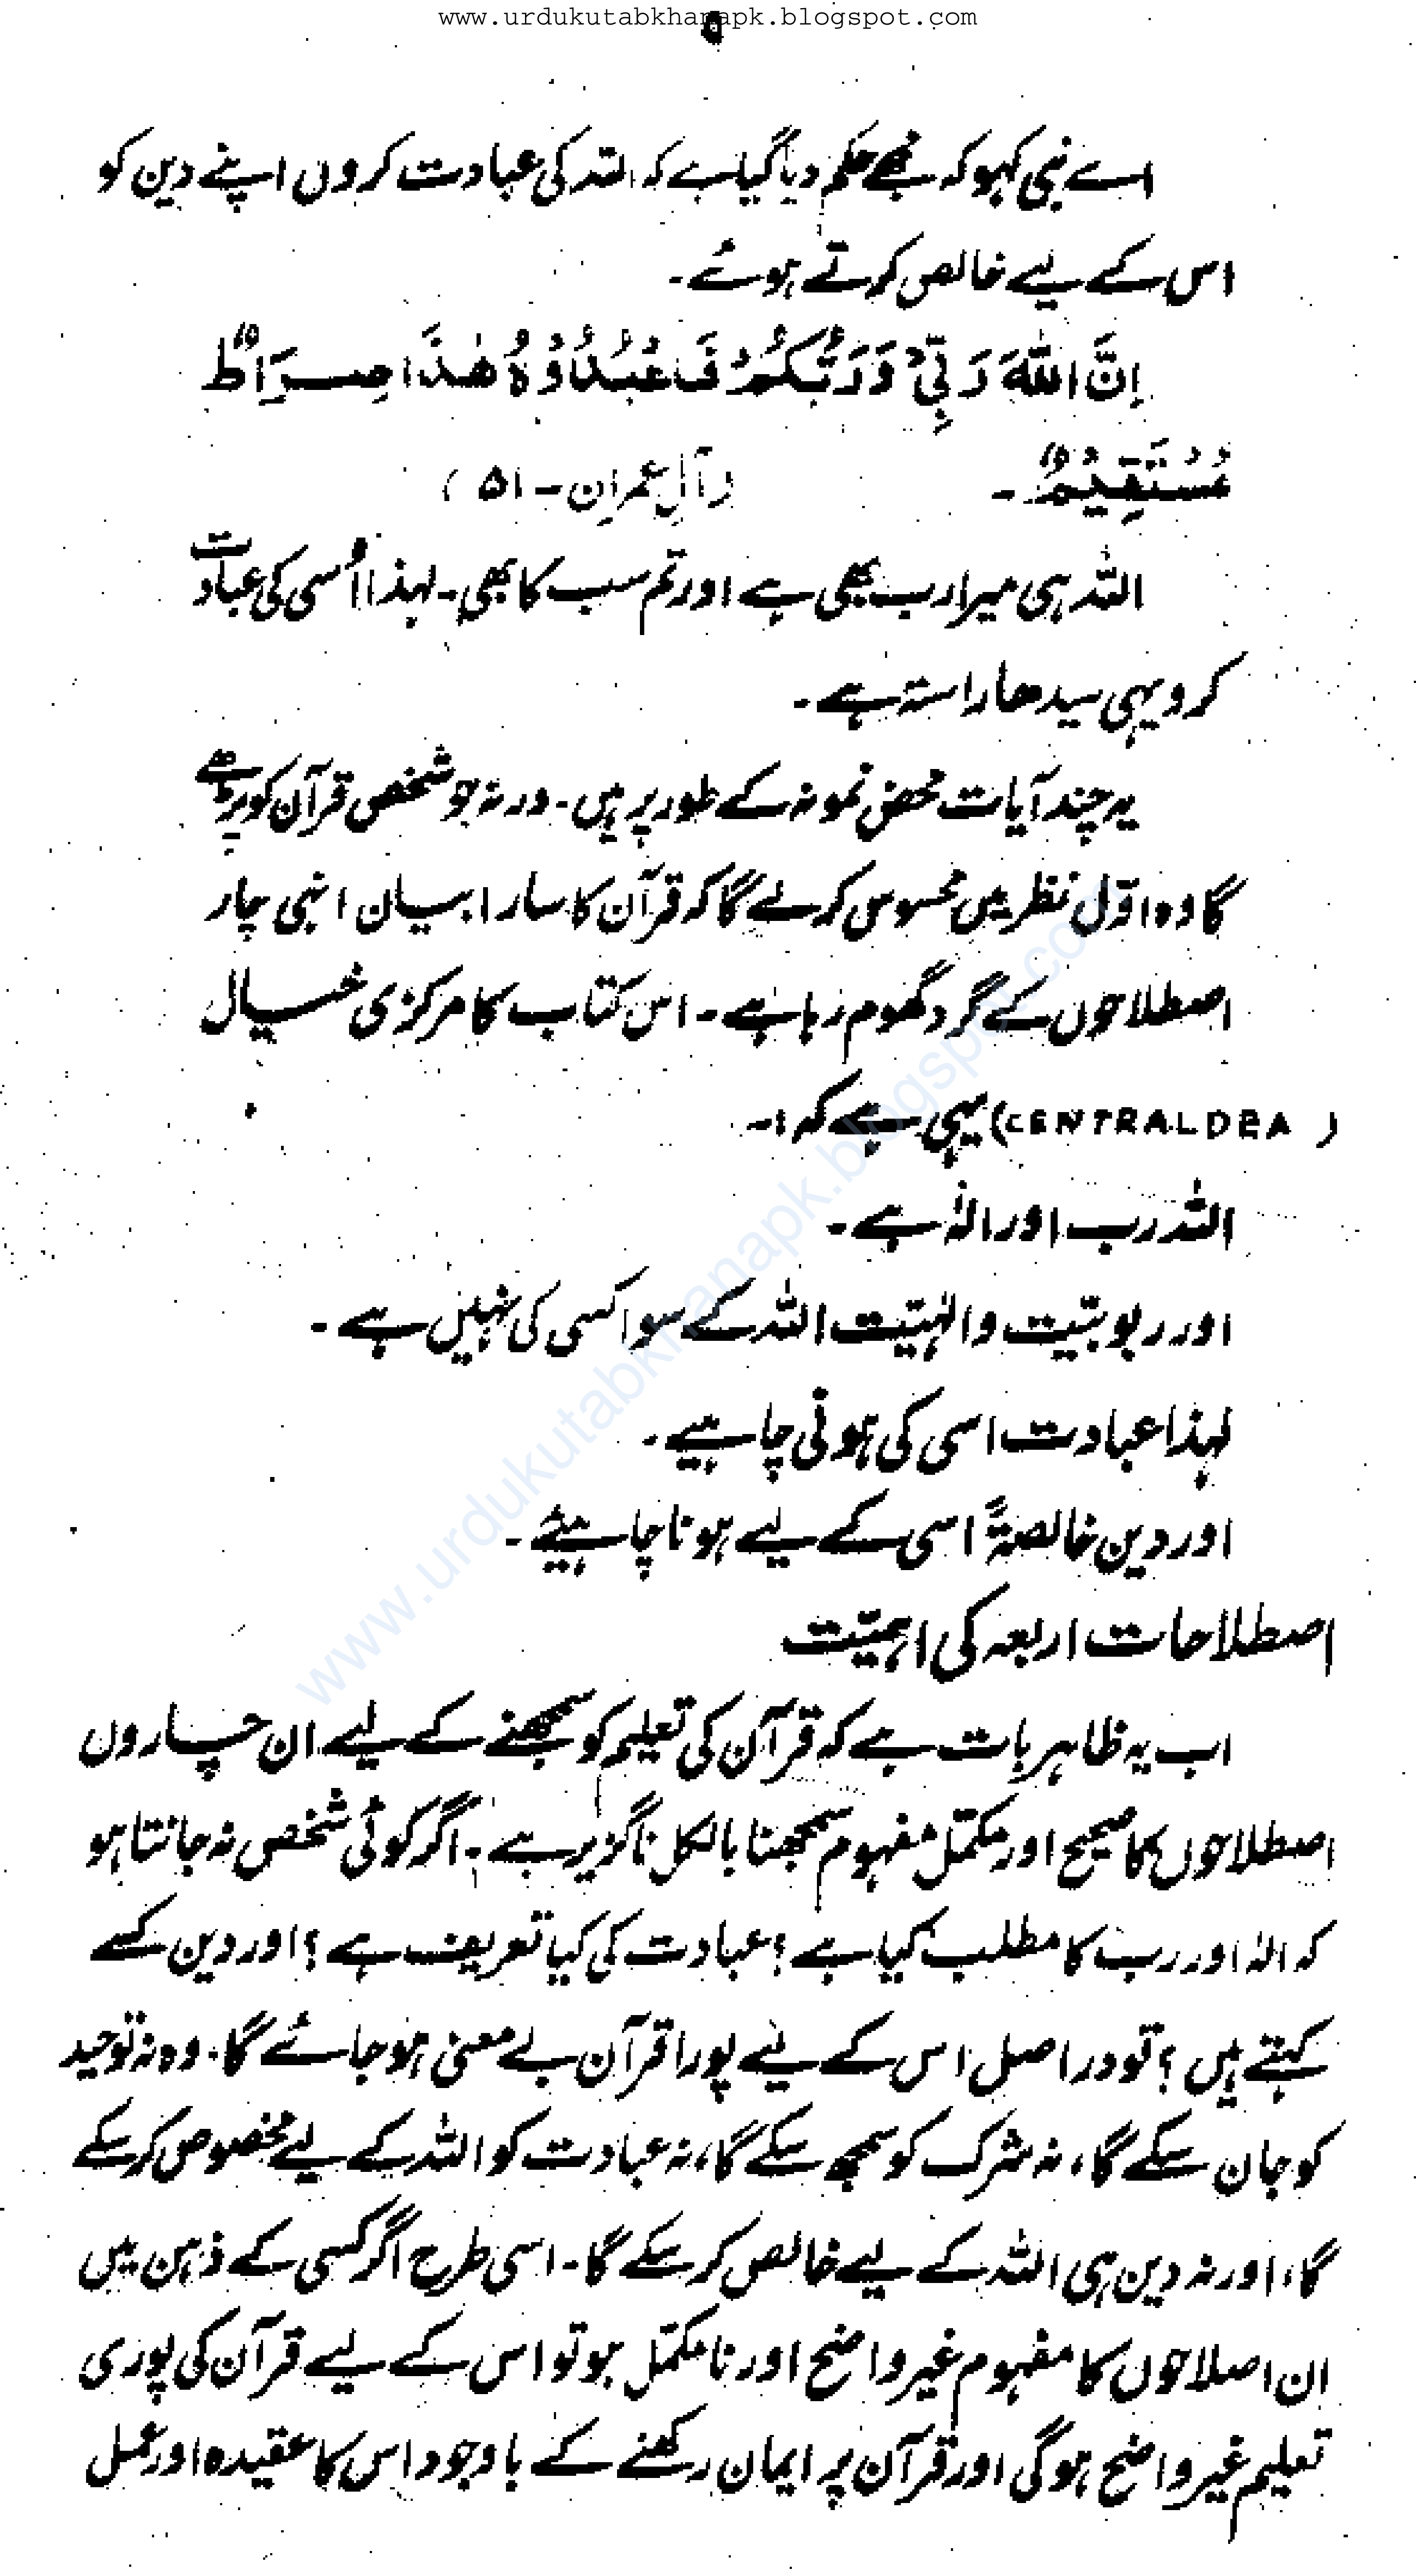 www.urdukutabkhanapk.blogspot.com
۵
اے نبی کہو کہ مجھے حکم دیا گیا ہے کہ اللہ کی عبادت کروں اپنے دین کو
اس کے لیے خالص کرتے ہوئے۔
اِنَّ اللّٰهَ رَبِّیْ وَرَبُّکُمْ فَاعْبُدُوْهُ هٰذَا صِرَاطٌ
مُّسْتَقِیْمٌ۔ (آلِ عمران - ۵۱)
اللہ ہی میرا رب بھی ہے اور تم سب کا بھی۔ لہذا اُسی کی عبادت
کرو یہی سیدھا راستہ ہے۔
یہ چند آیات محض نمونہ کے طور پر ہیں۔ ورنہ جو شخص قرآن کو پڑھے
گا وہ اوّل نظر میں محسوس کر لے گا کہ قرآن کا سارا بیان انہی چار
اصطلاحوں کے گرد گھوم رہا ہے۔ اس کتاب کا مرکزی خیال
(CENTRALDEA) یہی ہے کہ :۔
اللہ رب اور الٰہ ہے۔
اور ربوبیّت و الٰہیّت اللہ کے سوا کسی کی نہیں ہے۔
لہذا عبادت اسی کی ہونی چاہیے۔
اور دین خالصۃً اسی کے لیے ہونا چاہیئے۔
اصطلاحات اربعہ کی اہمیّت
اب یہ ظاہر بات ہے کہ قرآن کی تعلیم کو سمجھنے کے لیے ان چاروں
اصطلاحوں کا صحیح اور مکمّل مفہوم سمجھنا بالکل ناگزیر ہے۔ اگر کوئی شخص نہ جانتا ہو
کہ الٰہ اور رب کا مطلب کیا ہے؟ عبادت کی کیا تعریف ہے؟ اور دین کسے
کہتے ہیں؟ تو دراصل اس کے لیے پورا قرآن بے معنی ہو جائے گا۔ وہ نہ توحید
کو جان سکے گا، نہ شرک کو سمجھ سکے گا، نہ عبادت کو اللہ کے لیے مخصوص کر سکے
گا، اور نہ دین ہی اللہ کے لیے خالص کر سکے گا۔ اسی طرح اگر کسی کے ذہن میں
ان اصلاحوں کا مفہوم غیر واضح اور نامکمّل ہو تو اس کے لیے قرآن کی پوری
تعلیم غیر واضح ہوگی اور قرآن پر ایمان رکھنے کے باوجود اس کا عقیدہ اور عمل
www.urdukutabkhanapk.blogspot.com